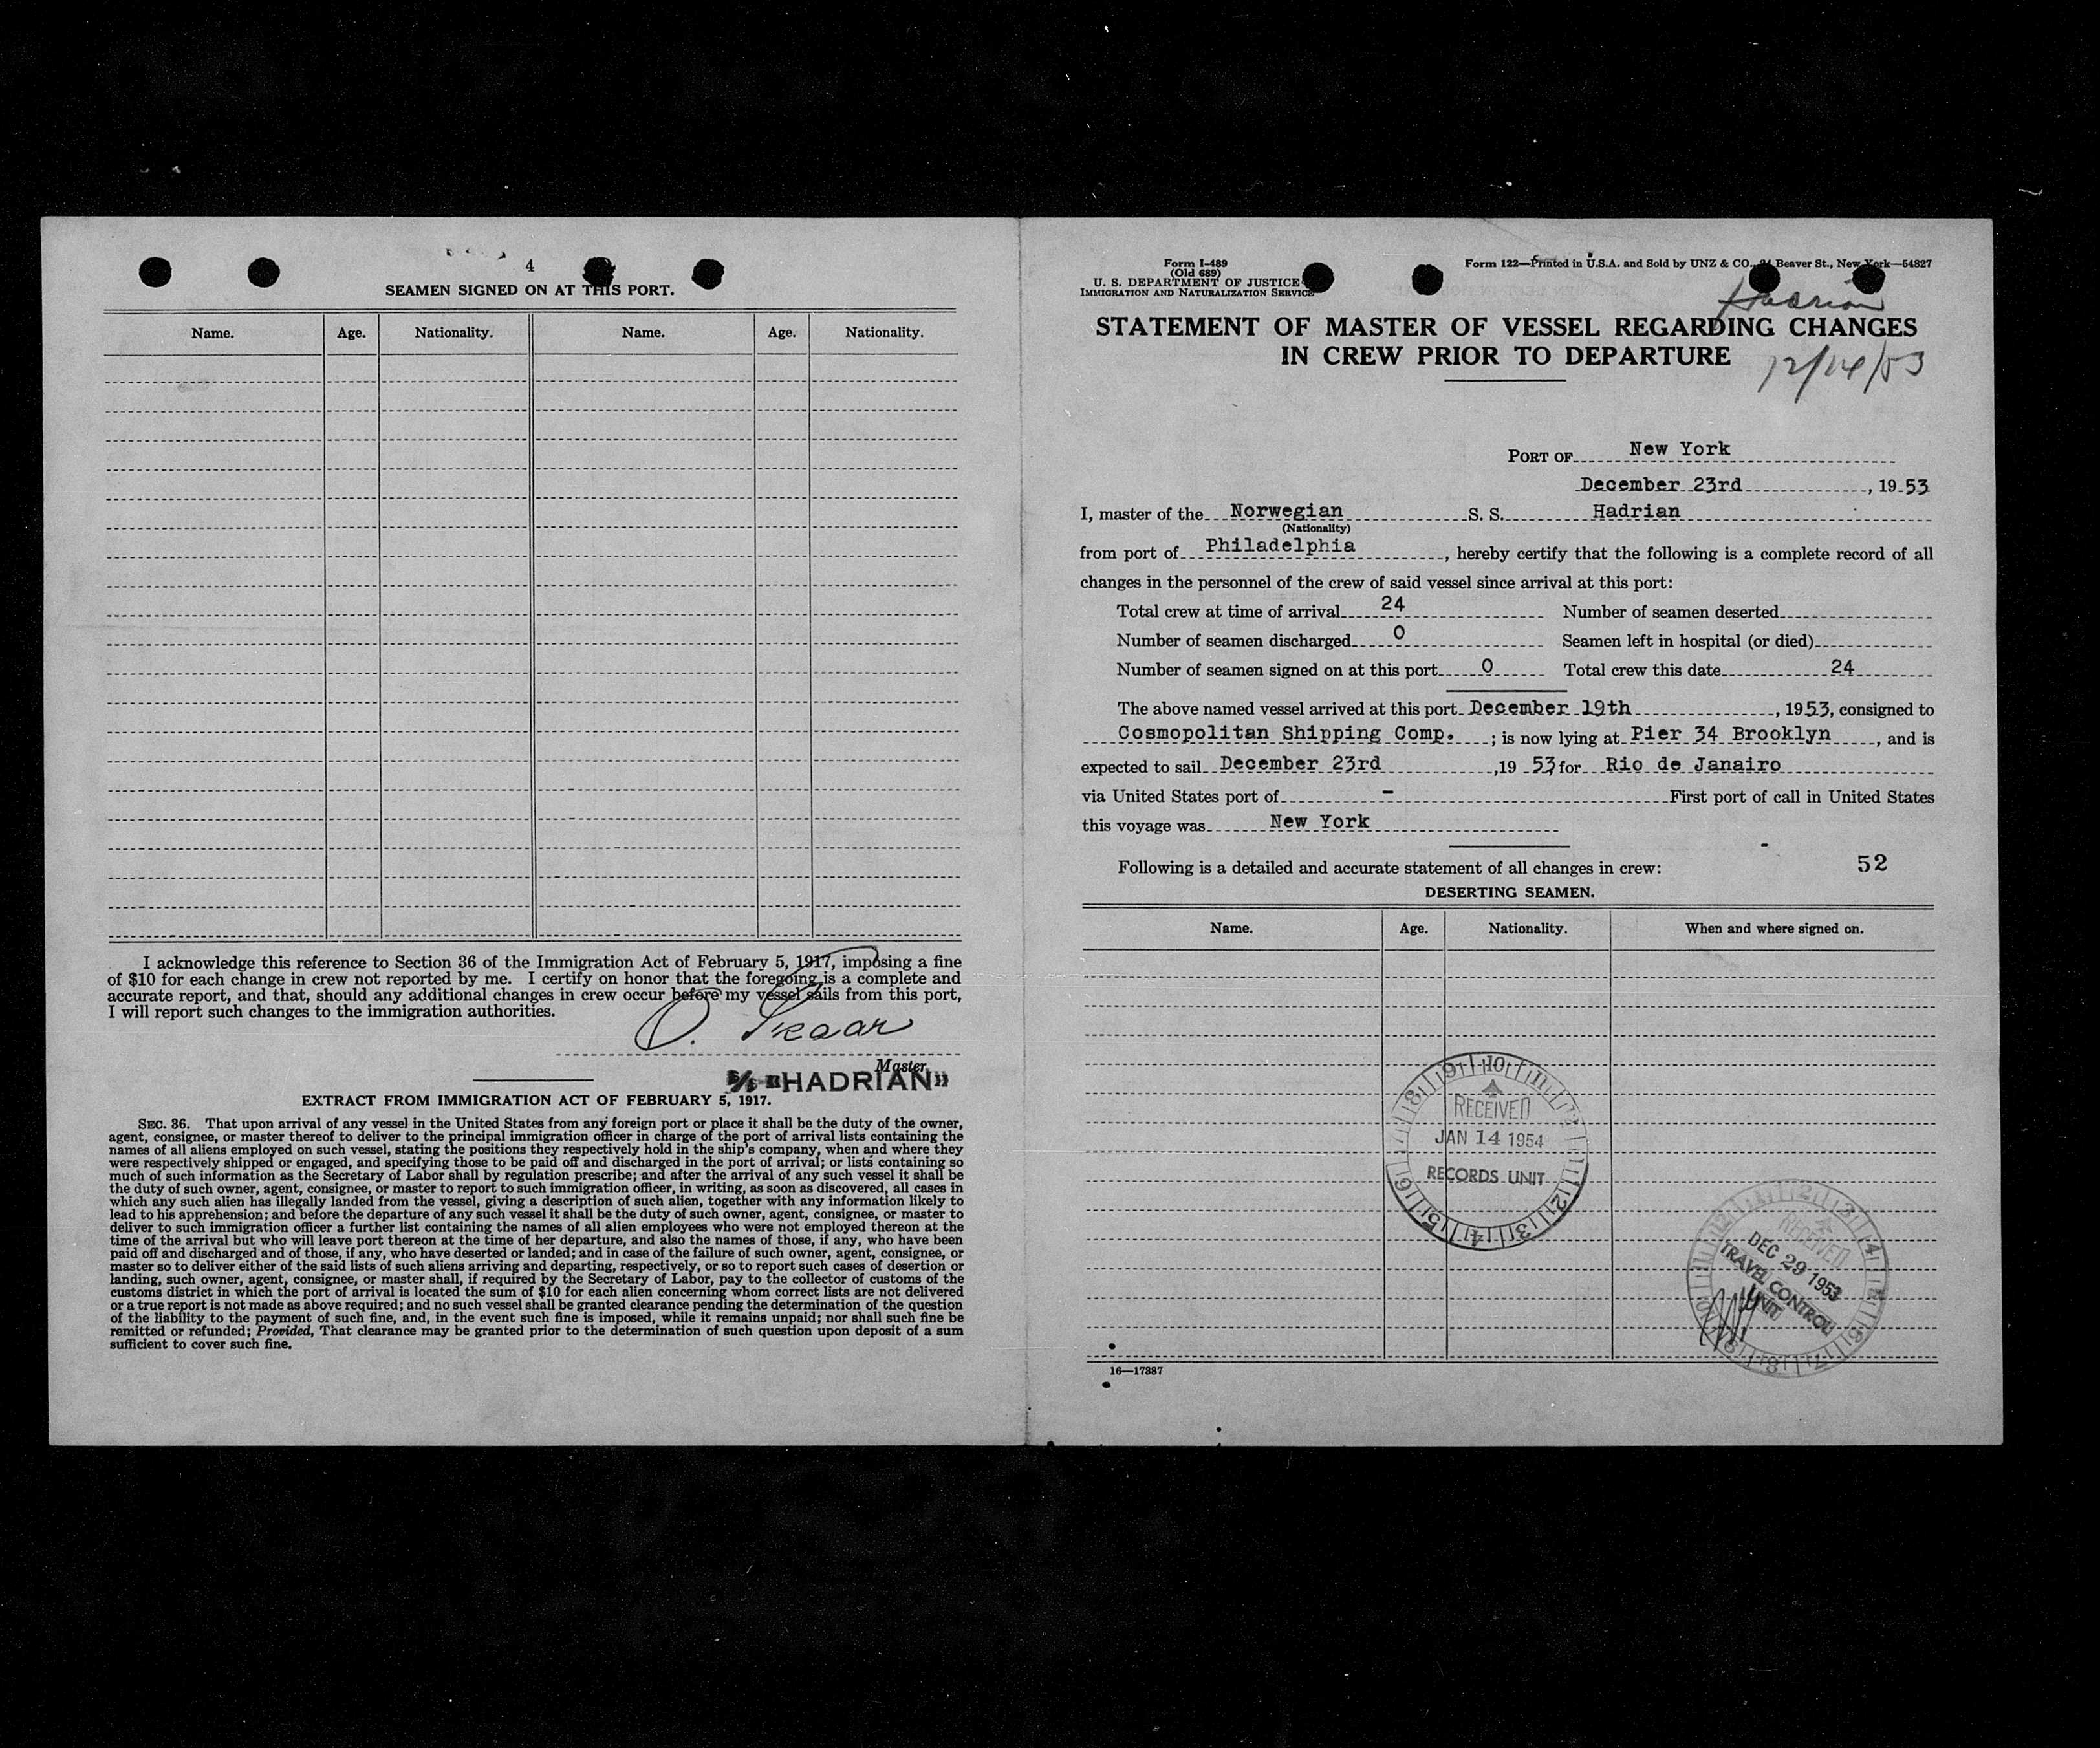 4
SEAMEN SIGNED ON AT THIS PORT.
Name. Age. Nationality. Name. Age. Nationality.
I acknowledge this reference to Section 36 of the Immigration Act of February 5, 1917, imposing a fine
of $10 for each change in crew not reported by me. I certify on honor that the foregoing is a complete and
accurate report, and that, should any additional changes in crew occur before my vessel sails from this port,
I will report such changes to the immigration authorities.
O. Skaar
Master.
S/S "HADRIAN"
EXTRACT FROM IMMIGRATION ACT OF FEBRUARY 5, 1917.
SEC. 36. That upon arrival of any vessel in the United States from any foreign port or place it shall be the duty of the owner,
agent, consignee, or master thereof to deliver to the principal immigration officer in charge of the port of arrival lists containing the
names of all aliens employed on such vessel, stating the positions they respectively hold in the ship's company, when and where they
were respectively shipped or engaged, and specifying those to be paid off and discharged in the port of arrival; or lists containing so
much of such information as the Secretary of Labor shall by regulation prescribe; and after the arrival of any such vessel it shall be
the duty of such owner, agent, consignee, or master to report to such immigration officer, in writing, as soon as discovered, all cases in
which any such alien has illegally landed from the vessel, giving a description of such alien, together with any information likely to
lead to his apprehension; and before the departure of any such vessel it shall be the duty of such owner, agent, consignee, or master to
deliver to such immigration officer a further list containing the names of all alien employees who were not employed thereon at the
time of the arrival but who will leave port thereon at the time of her departure, and also the names of those, if any, who have been
paid off and discharged and of those, if any, who have deserted or landed; and in case of the failure of such owner, agent, consignee, or
master so to deliver either of the said lists of such aliens arriving and departing, respectively, or so to report such cases of desertion or
landing, such owner, agent, consignee, or master shall, if required by the Secretary of Labor, pay to the collector of customs of the
customs district in which the port of arrival is located the sum of $10 for each alien concerning whom correct lists are not delivered
or a true report is not made as above required; and no such vessel shall be granted clearance pending the determination of the question
of the liability to the payment of such fine, and, in the event such fine is imposed, while it remains unpaid; nor shall such fine be
remitted or refunded; Provided, That clearance may be granted prior to the determination of such question upon deposit of a sum
sufficient to cover such fine.
Form I-489
(Old 689)
U. S. DEPARTMENT OF JUSTICE
IMMIGRATION AND NATURALIZATION SERVICE
Form 122—Printed in U.S.A. and Sold by UNZ & CO., Beaver St., New York—54827
Hadrian
STATEMENT OF MASTER OF VESSEL REGARDING CHANGES
IN CREW PRIOR TO DEPARTURE
12/14/53
PORT OF New York
December 23rd, 1953
I, master of the Norwegian S. S. Hadrian
(Nationality)
from port of Philadelphia, hereby certify that the following is a complete record of all
changes in the personnel of the crew of said vessel since arrival at this port:
Total crew at time of arrival 24 Number of seamen deserted
Number of seamen discharged 0 Seamen left in hospital (or died)
Number of seamen signed on at this port 0 Total crew this date 24
The above named vessel arrived at this port December 19th, 1953, consigned to
Cosmopolitan Shipping Comp. ; is now lying at Pier 34 Brooklyn, and is
expected to sail December 23rd, 19 53 for Rio de Janairo
via United States port of - First port of call in United States
this voyage was New York
Following is a detailed and accurate statement of all changes in crew: 52
DESERTING SEAMEN.
Name. Age. Nationality. When and where signed on.
RECEIVED
JAN 14 1954
RECORDS UNIT
RECEIVED
DEC 29 1953
TRAVEL CONTROL
UNIT
16—17387